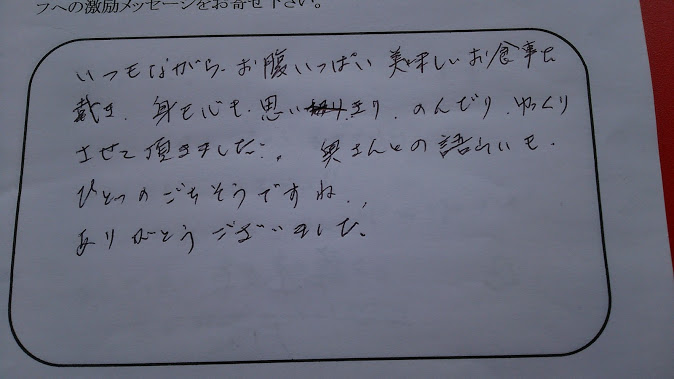 フへの激励メッセージをお寄せ下さい。
いつもながら、お腹いっぱい 美味しいお食事を
戴き、身も心も、思いきり、のんびり、ゆっくり
させて頂きました。奥さんとの語らいも、
ひとつのごちそうですね、
ありがとうございました。